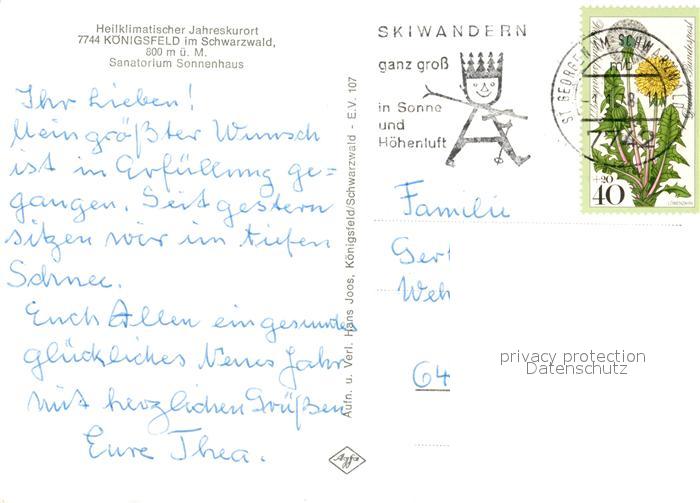 Heilklimatischer Jahreskurort
7744 KÖNIGSFELD im Schwarzwald,
800 m ü. M.
Sanatorium Sonnenhaus
Ihr Lieben!
Mein größter Wunsch
ist in Erfüllung ge=
gangen. Seit gestern
sitzen wir im tiefen
Schnee.
Euch Allen ein gesundes
glückliches Neues Jahr
mit herzlichen Grüßen
Eure Thea.
Aufn. u. Verl. Hans Joos, Königsfeld/Schwarzwald - E.V. 107
Agfa
SKIWANDERN
ganz groß
in Sonne
und
Höhenluft
ST. GEORGEN IM SCHWARZWALD
mb
+20
40
LÖWENZAHN
Familie
Gert
Weh
64
privacy protection
Datenschutz